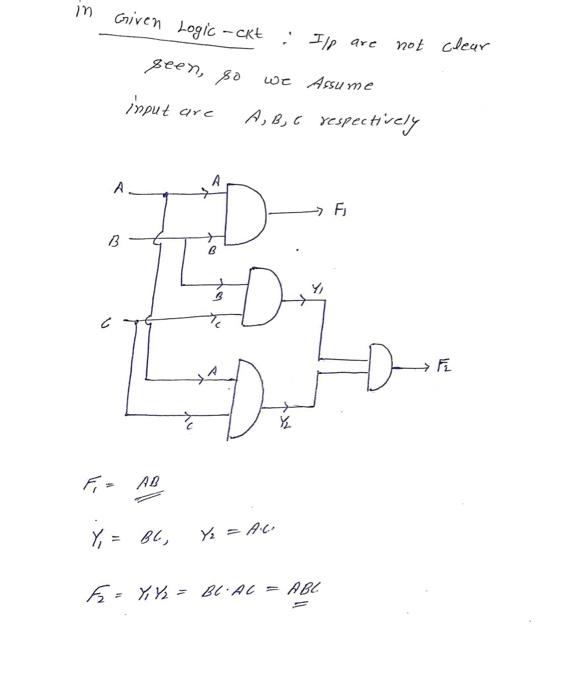 in Given Logic-ckt : I/p are not clear
seen, so we Assume
input are A, B, C respectively
A
A
F1
B
B
B
Y1
C
C
F2
A
C
Y2
F1 = AB
Y1 = BC, Y2 = A.C.
F2 = Y1Y2 = BC.AC = ABC